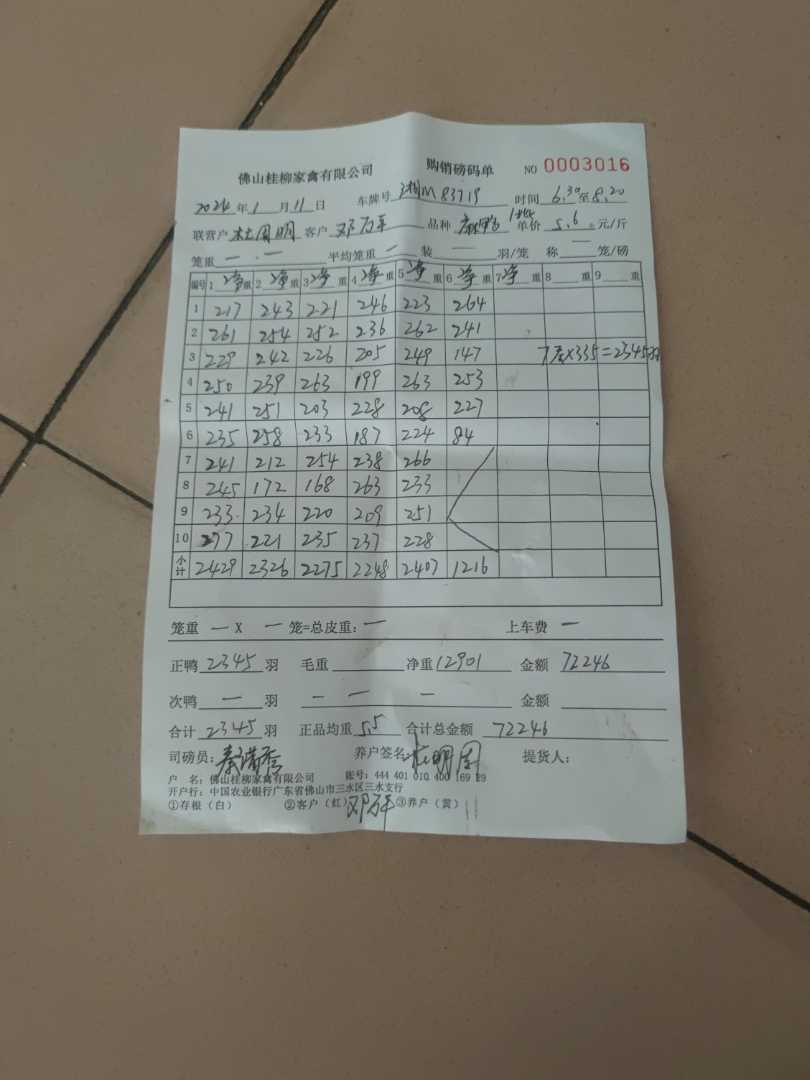 佛山桂柳家禽有限公司 购销磅码单 NO 0003016
2024年1月11日 车牌号 湘M 83719 时间 6.30至8.20
联营户 杜周明 客户 邓万平 品种 单价 5.6元/斤
笼重 — 平均笼重 — 装 — 羽/笼 称 — 笼/磅
编号 1净重 2净重 3净重 4净重 5净重 6净重 7净重 8重 9重
1 217 243 221 246 223 264
2 261 254 252 236 262 241
3 229 242 226 205 249 147 7 ×335=2345羽
4 250 239 263 199 263 253
5 241 251 203 228 208 227
6 235 258 233 187 224 84
7 241 212 254 238 266
8 245 172 168 263 233
9 233 234 220 209 251
10 277 221 235 237 228
小计 2429 2326 2275 2248 2407 1216
笼重 — X — 笼=总皮重: — 上车费 —
正鸭 2345 羽 毛重 净重 12901 金额 72246
次鸭 — 羽 — — — 金额
合计 2345 羽 正品均重 5.5 合计总金额 72246
司磅员: 养户签名 提货人:
户 名: 佛山桂柳家禽有限公司 账号: 444 401 010 400 169 29
开户行: 中国农业银行广东省佛山市三水区三水支行
①存根(白) ②客户(红) 邓万平 ③养户(黄)